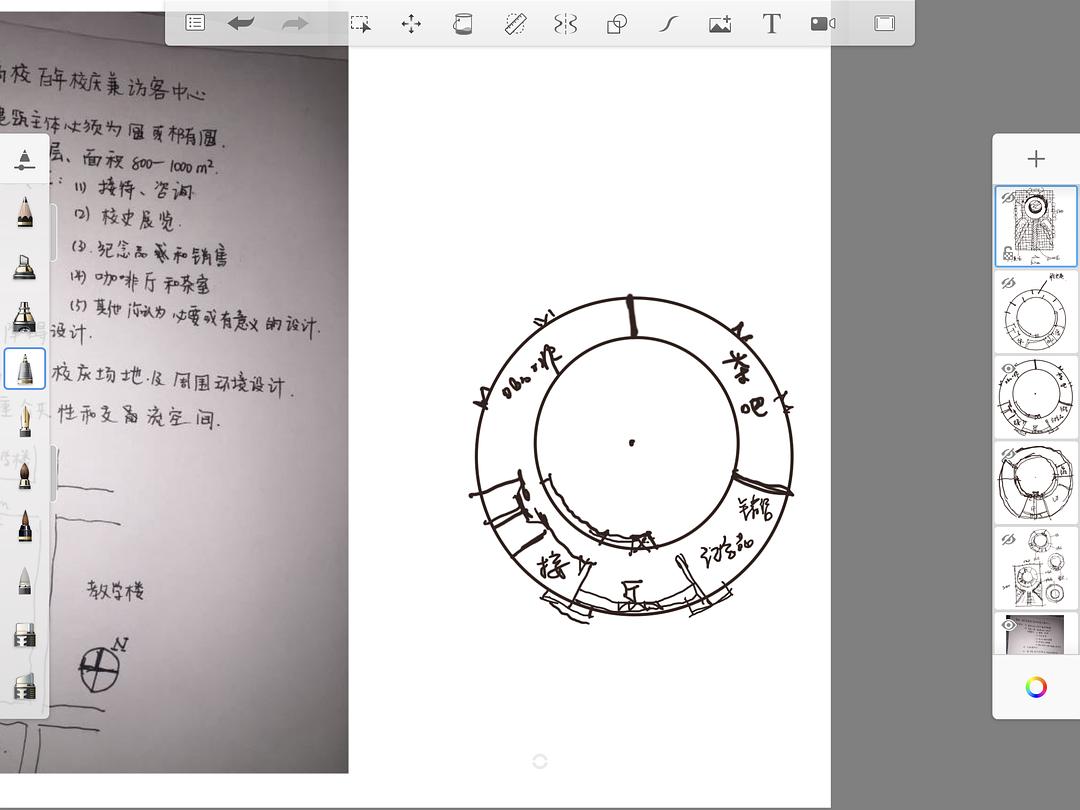 校百年校庆兼访客中心
建筑主体必须为圆或椭圆.
层、面积 800-1000m².
(1) 接待、咨询
(2) 校史展览.
(3). 纪念品 和销售
(4) 咖啡厅和茶室
(5) 其他你认为必要或有意义的设计.
设计.
校庆场地及周围环境设计.
性和交 流空间.
教学楼
N
茶
吧
销售
纪念品
接
厅
T